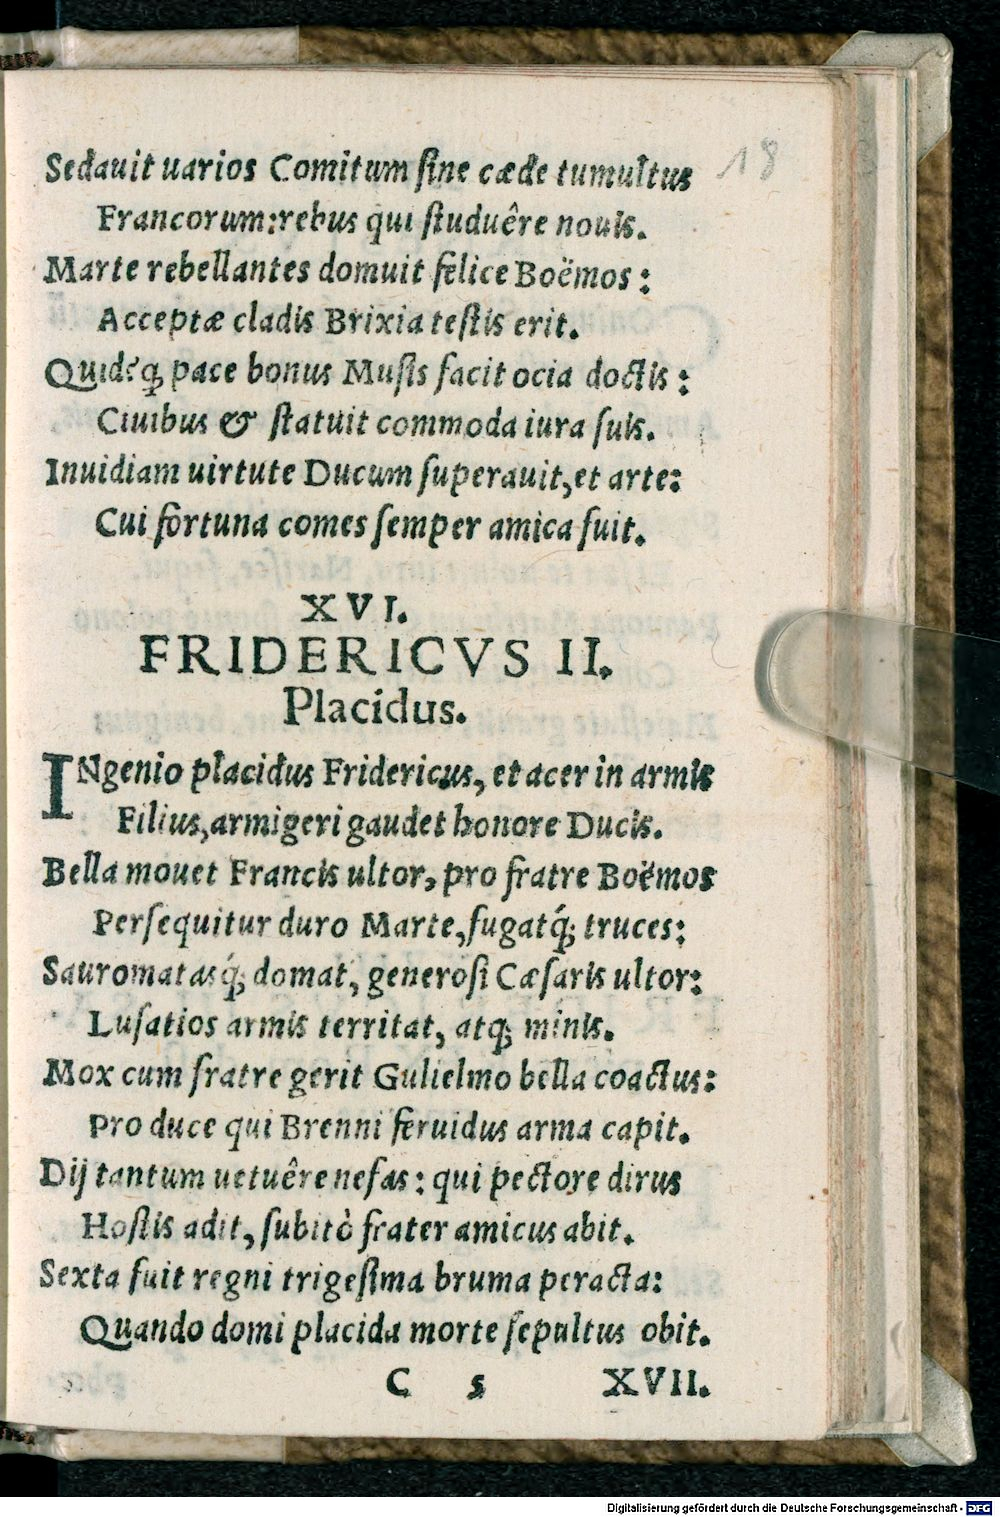 18
Sedauit uarios Comitum sine cæde tumultus
Francorum: rebus qui studuêre nouis.
Marte rebellantes domuit felice Boëmos:
Acceptæ cladis Brixia testis erit.
Quidq́; pace bonus Musis facit ocia doctis:
Ciuibus & statuit commoda iura suis.
Inuidiam uirtute Ducum superauit, et arte:
Cui fortuna comes semper amica fuit.
XVI.
FRIDERICVS II.
Placidus.
INgenio placidus Fridericus, et acer in armis
Filius, armigeri gaudet honore Ducis.
Bella mouet Francis ultor, pro fratre Boëmos
Persequitur duro Marte, fugatq́; truces:
Sauromatasq́; domat, generosi Cæsaris ultor:
Lusatios armis territat, atq; minis.
Mox cum fratre gerit Gulielmo bella coactus:
Pro duce qui Brenni feruidus arma capit.
Dij tantum uetuêre nefas: qui pectore dirus
Hostis adit, subitò frater amicus abit.
Sexta fuit regni trigesima bruma peracta:
Quando domi placida morte sepultus obit.
C 5 XVII.
Digitalisierung gefördert durch die Deutsche Forschungsgemeinschaft - DFG